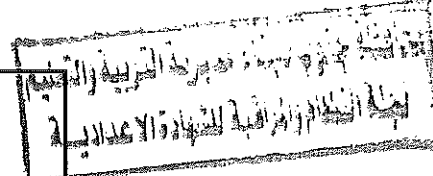 مديرية التربية والتعليم
لجنة النظام والمراقبة للشهادة الاعدادية